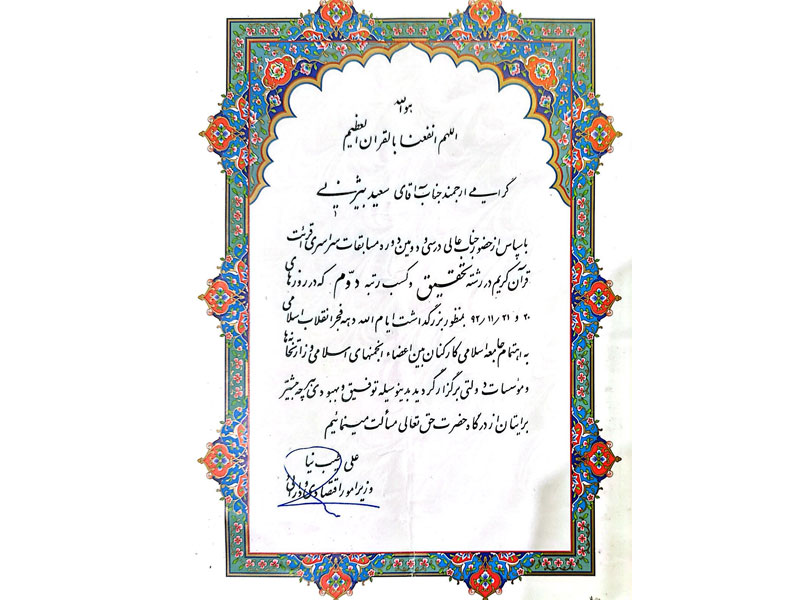 هوالله
اللهم انفعنا بالقران العظیم
گرامی ارجمند جناب آقای سعید بیژنی
با سپاس از حضور جنابعالی در سی و دومین دوره مسابقات سراسری قرائت
قرآن کریم در رشته تحقیق و کسب رتبه دوّم که در روزهای
۲۰ و ۹۲/۱۱/۲۱ بمنظور بزرگداشت ایام الله دهه فجر انقلاب اسلامی
به اهتمام جامعه اسلامی کارکنان بین اعضاء انجمنهای اسلامی وزارتخانه‌ها
و مؤسسات دولتی برگزار گردید بدینوسیله توفیق و بهبودی هر چه بیشتر
برایتان از درگاه حضرت حق تعالی مسألت مینمائیم
علی طیب نیا
وزیر امور اقتصادی و دارائی